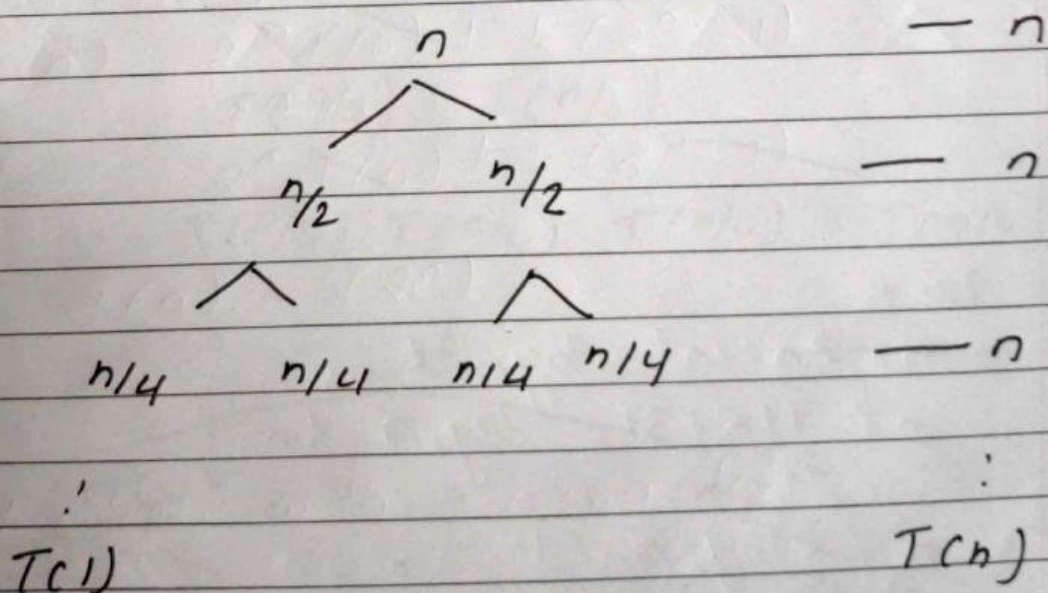 n — n
n/2 n/2 — n
n/4 n/4 n/4 n/4 — n
: :
T(1) T(n)